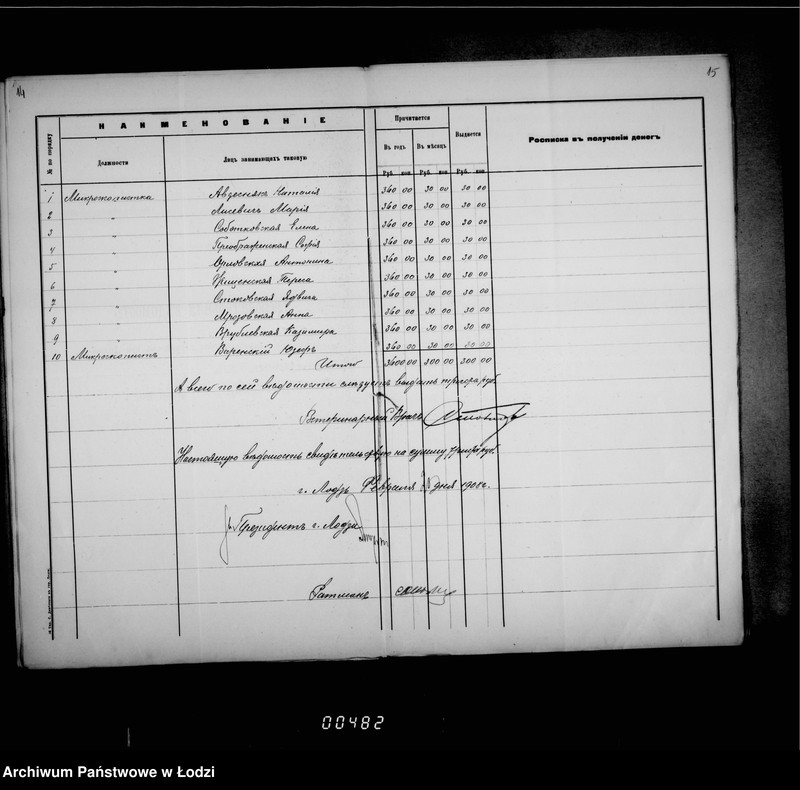 14
15
№ по порядку
НАИМЕНОВАНІЕ
Должности
Лицъ занимающихъ таковую
Причитается
Въ годъ
Въ мѣсяцъ
Выдается
Росписка въ полученіи денегъ
Руб. коп Руб. коп Руб. коп
1 Микроскопистка Наталія 360 00 30 00 30 00
2 " Марія 360 00 30 00 30 00
3 " Соботковская Елена 360 00 30 00 30 00
4 " Преображенская Софія 360 00 30 00 30 00
5 " Орловская Антонина 360 00 30 00 30 00
6 " 360 00 30 00 30 00
7 " Стоковская Ядвига 360 00 30 00 30 00
8 " Мрозовская Анна 360 00 30 00 30 00
9 " Врублевская Казимира 360 00 30 00 30 00
10 Микроскопистъ Юзефъ 360 00 30 00 30 00
Итого 3600 00 300 00 300 00
А всего по сей вѣдомости слѣдуетъ выдать триста руб.
Ветеринарный Врачъ
Настоящую вѣдомость свидѣтельствую на сумму триста руб.
г. Лодзь Февраля дня 1908 г.
Президентъ г. Лодзи
Ратманъ
00482
Archiwum Państwowe w Łodzi